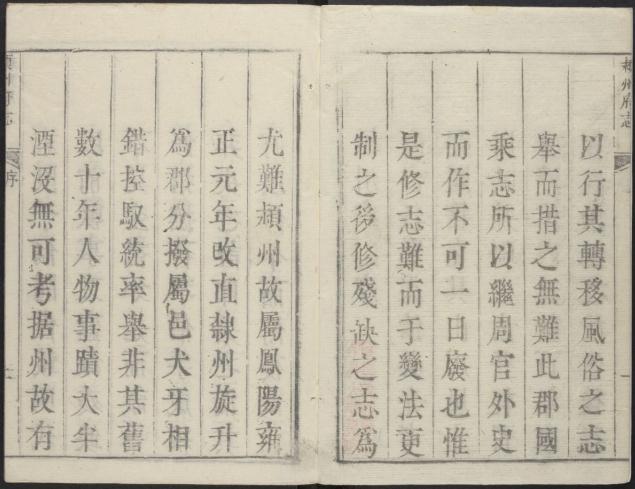 潁州府志
以行其轉移風俗之志
舉而措之無難此郡國
乘志所以繼周官外史
而作不可一日廢也惟
是修志難而于變法更
制之後修殘缺之志爲
尤難潁州故屬鳳陽雍
正元年改直隷州旋升
爲郡分撥屬邑犬牙相
錯控馭統率舉非其舊
數十年人物事蹟大半
湮沒無可考据州故有
潁州府志
序